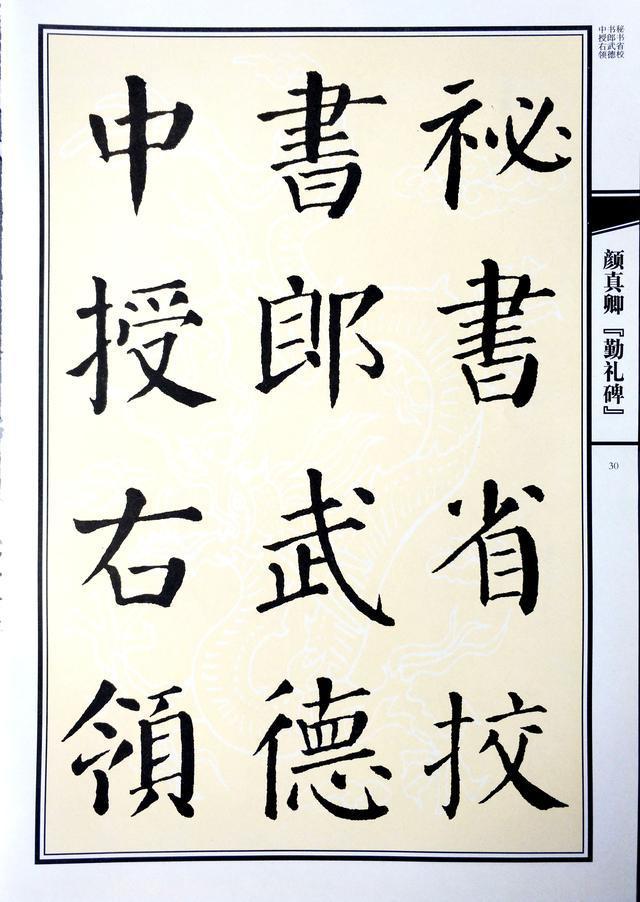 祕書省挍
書郎武德
中授右領
秘书省校
书郎武德
中授右领
颜真卿『勤礼碑』
30